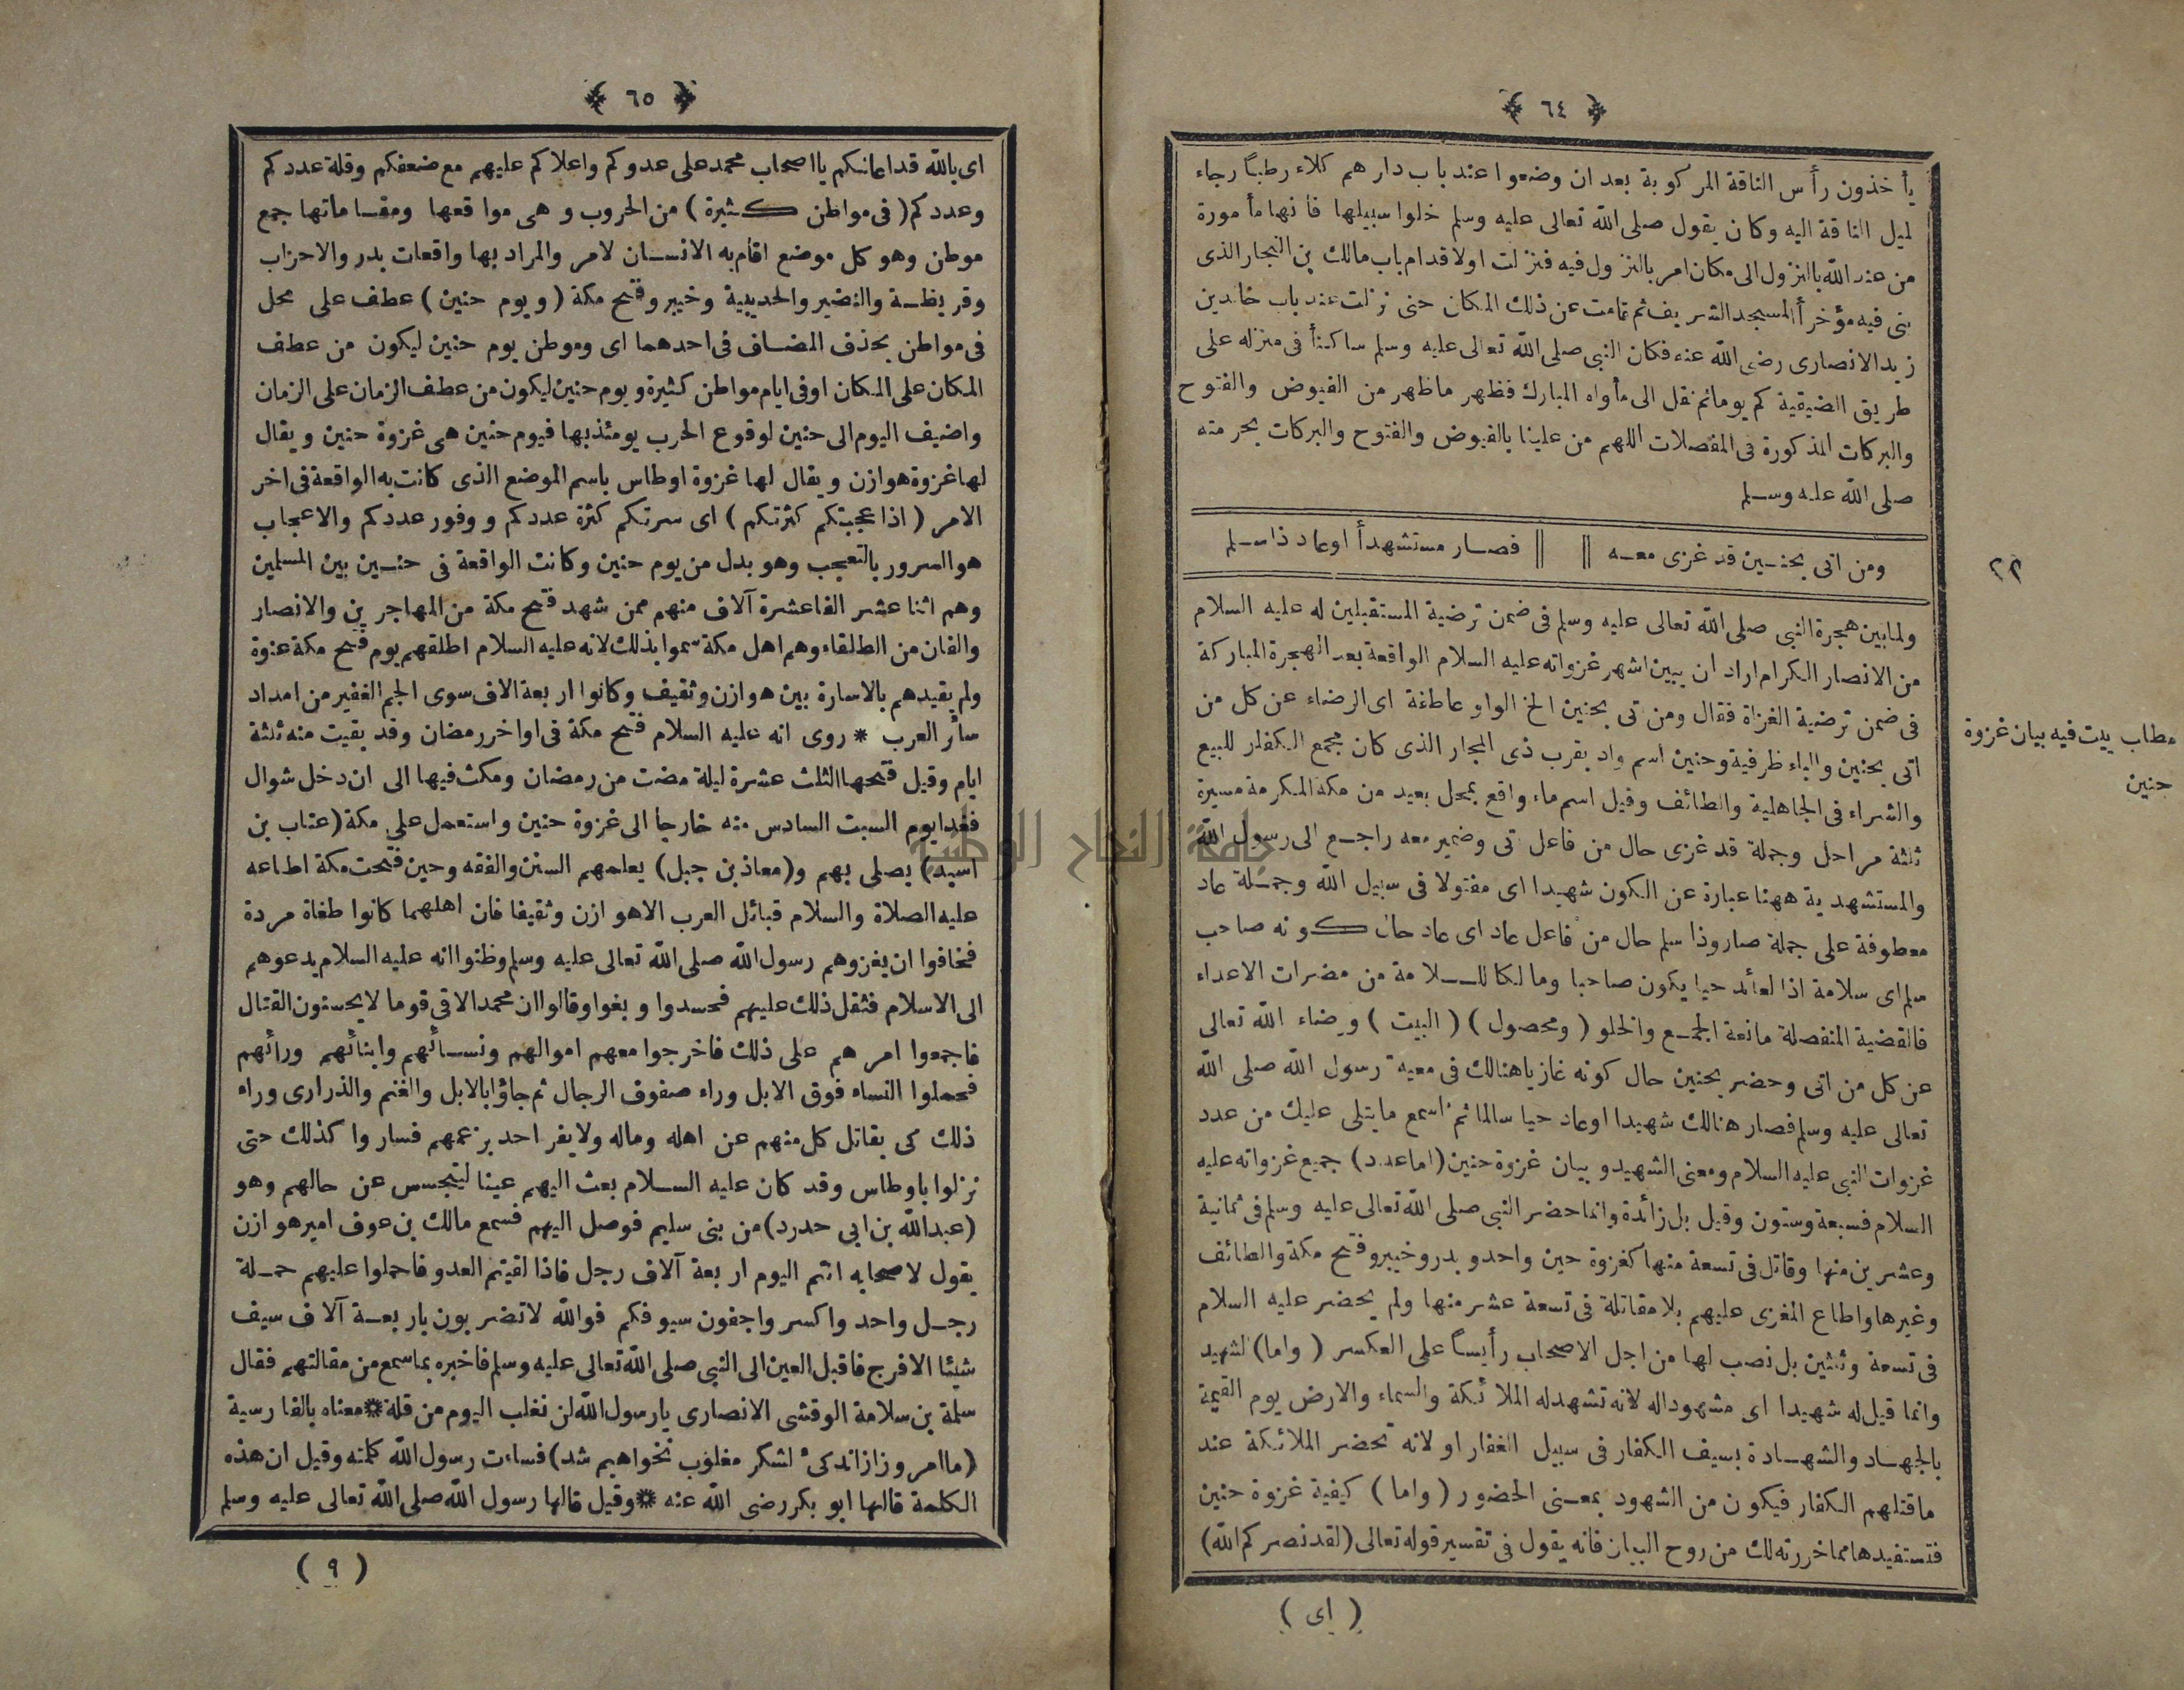 ﴿ ٦٤ ﴾
يأ خذون رأس الناقة المركوبة بعد ان وضعوا عند باب دارهم كلاء رطباً رجاء
لميل الناقة اليه وكان يقول صلى الله تعالى عليه وسلم خلوا سبيلها فانها مأمورة
من عند الله بالنزول الى مكان امر بالنزول فيه فنزلت اولا قدام باب مالك بن النجار الذى
بنى فيه مؤخراً المسجد الشريف ثم قامت عن ذلك المكان حتى نزلت عند باب خالد بن
زيد الانصارى رضى الله عنه فكان النبى صلى الله تعالى عليه وسلم ساكناً فى منزله على
طريق الضيقية كم يوما ثم نقل الى مأواه المبارك فظهر ماظهر من الفيوض والفتوح
والبركات المذكورة فى المفصلات اللهم من علينا بالفيوض والفتوح والبركات بحرمته
صلى الله عليه وسلم
ومن اتى بحنين قد غزى معه || || فصار مستشهداً اوعاد ذاسلم
٢٢
ولمابين هجرة النبى صلى الله تعالى عليه وسلم فى ضمن ترضية المستقبلين له عليه السلام
من الانصار الكرام اراد ان يبين اشهر غزواته عليه السلام الواقعة بعد الهجرة المباركة
فى ضمن ترضية الغزاة فقال ومن تى بحنين الخ الواو عاطفة اى الرضاء عن كل من
اتى بحنين والباء ظرفية وحنين اسم واد بقرب ذى المجاز الذى كان مجمع الكفار للبيع
والشراء فى الجاهلية والطائف وقيل اسم ماء واقع بمحل بعيد من مكة المكرمة مسيرة
ثلثة مراحل وجملة قد غزى حال من فاعل تى وضمير معه راجع الى رسول الله
والمستشهدية ههنا عبارة عن الكون شهيدا اى مقتولا فى سبيل الله وجملة عاد
معطوفة على جملة صار وذا سلم حال من فاعل عاد اى عاد حال كونه صاحب
سلم اى سلامة اذا لعائد حيا يكون صاحبا ومالكا للسلامة من مضرات الاعداء
فالقضية المنفصلة مانعة الجمع والخلو (ومحصول) (البيت) ورضاء الله تعالى
عن كل من اتى وحضر بحنين حال كونه غازيا هنالك فى معية رسول الله صلى الله
تعالى عليه وسلم فصار هنالك شهيدا اوعاد حيا سالما ثم اسمع مايتلى عليك من عدد
غزوات النبى عليه السلام ومعنى الشهيد وبيان غزوة حنين (اما عدد) جميع غزواته عليه
السلام فسبعة وستون وقيل بل زائدة وانما حضر النبى صلى الله تعالى عليه وسلم فى ثمانية
وعشرين منها وقاتل فى تسعة منها كغزوة حين واحد وبدر وخيبر وفتح مكة والطائف
وغيرها واطاع المغزى عليهم بلا مقاتلة فى تسعة عشر منها ولم يحضر عليه السلام
فى تسعة وثلثين بل نصب لها من اجل الاصحاب رأيساً على العكسر (واما) الشهيد
وانما قيل له شهيدا اى مشهوداله لانه تشهدله الملائكة والسماء والارض يوم القيمة
بالجهاد والشهادة بسيف الكفار فى سبيل الغفار او لانه تحضر الملائكة عند
ماقتلهم الكفار فيكون من الشهود بمعنى الحضور (واما) كيفية غزوة حنين
فتستفيدها مما خررته لك من روح البيان فانه يقول فى تفسير قوله تعالى (لقد نصركم الله)
( اى )
مطاب بيت فيه بيان غزوة
حنين
﴿ ٦٥ ﴾
اى بالله قد اعانكم يا اصحاب محمد على عدوكم واعلاكم عليهم مع ضعفكم وقلة عددكم
وعددكم (فى مواطن كثيرة) من الحروب وهى مواقعها ومقاماتها جمع
موطن وهو كل موضع اقام به الانسان لامر والمراد بها واقعات بدر والاحزاب
وقريظة والنضير والحديبية وخيبر وفتح مكة (ويوم حنين) عطف على محل
فى مواطن بحذف المضاف فى احدهما اى وموطن يوم حنين ليكون من عطف
المكان على المكان اوفى ايام مواطن كثيرة ويوم حنين ليكون من عطف الزمان على الزمان
واضيف اليوم الى حنين لوقوع الحرب يومئذ بها فيوم حنين هى غزوة حنين ويقال
لها غزوة هوازن ويقال لها غزوة اوطاس باسم الموضع الذى كانت به الواقعة فى اخر
الامر (اذا عجبتكم كثرتكم) اى سرتكم كثرة عددكم ووفور عددكم والاعجاب
هو السرور بالتعجب وهو بدل من يوم حنين وكانت الواقعة فى حنين بين المسلمين
وهم اثنا عشر الفا عشرة آلاف منهم ممن شهد فتح مكة من المهاجرين والانصار
والفان من الطلقاء وهم اهل مكة سموا بذلك لانه عليه السلام اطلقهم يوم فتح مكة عنوة
ولم يقيدهم بالاسارة بين هوازن وثقيف وكانوا اربعة الاف سوى الجم الغفير من امداد
سائر العرب * روى انه عليه السلام فتح مكة فى اواخر رمضان وقد بقيت منه ثلثة
ايام وقيل فتحها الثلث عشرة ليلة مضت من رمضان ومكث فيها الى ان دخل شوال
فغدا يوم السبت السادس منه خارجا الى غزوة حنين واستعمل على مكة (عتاب بن
اسيد) يصلى بهم و(معاذ بن جبل) يعلمهم السنن والفقه وحين فتحت مكة اطاعه
عليه الصلاة والسلام قبائل العرب الا هوازن وثقيفا فان اهلهما كانوا طغاة مردة
فخافوا ان يغزوهم رسول الله صلى الله تعالى عليه وسلم وظنوا انه عليه السلام يدعوهم
الى الاسلام فثقل ذلك عليهم فحسدوا وبغوا وقالوا ان محمدا لاقى قوما لا يحسنون القتال
فاجمعوا امرهم على ذلك فاخرجوا معهم اموالهم ونسائهم وابنائهم ورائهم
فحملوا النساء فوق الابل وراء صفوف الرجال ثم جاؤا بالابل والغنم والذرارى وراء
ذلك كى يقاتل كل منهم عن اهله وماله ولا يفر احد بزعمهم فساروا كذلك حتى
نزلوا باوطاس وقد كان عليه السلام بعث اليهم عينا ليتجسس عن حالهم وهو
(عبدالله بن ابى حدرد) من بنى سليم فوصل اليهم فسمع مالك بن عوف امير هوازن
يقول لاصحابه انتم اليوم اربعة آلاف رجل فاذا لقيتم العدو فاحملوا عليهم حملة
رجل واحد واكسروا جفون سيوفكم فوالله لا تضربون باربعة آلاف سيف
شيئا الا فرج فاقبل العين الى النبى صلى الله تعالى عليه وسلم فاخبره بما سمع من مقالتهم فقال
سلمة بن سلامة الوقشى الانصارى يارسول الله لن نغلب اليوم من قلة * معناه بالفارسية
(ما امروز از اندكئ لشكر مغلوب نخواهيم شد) فساءت رسول الله كلمته وقيل ان هذه
الكلمة قالها ابو بكر رضى الله عنه * وقيل قالها رسول الله صلى الله تعالى عليه وسلم
( ٩ )
جامعة النجاح الوطنية